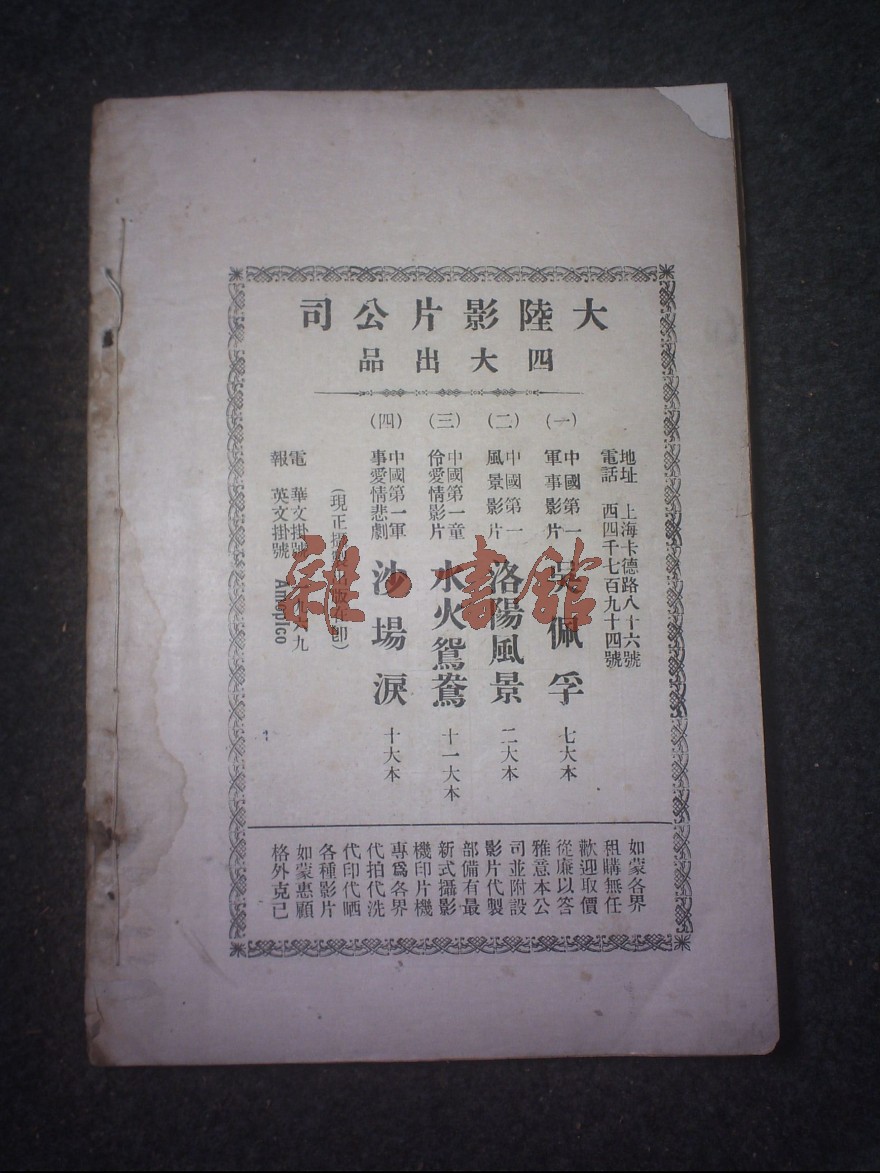 大陸影片公司
四大出品
地址 上海卡德路八十六號
電話 西四千七百九十四號
(一) 中國第一軍事影片 吳佩孚 七大本
(二) 中國第一風景影片 洛陽風景 二大本
(三) 中國第一童伶愛情影片 水火鴛鴦 十一大本
(四) 中國第一軍事愛情悲劇 沙場淚 十大本
(現正攝 版在卽)
電報 華文掛號 九六九
英文掛號 Amepico
如蒙各界
租購無任
歡迎取價
從廉以答
雅意本公
司並附設
影片代製
部備有最
新式攝影
機印片機
專爲各界
代拍代洗
代印代晒
各種影片
如蒙惠顧
格外克己
雜·書館